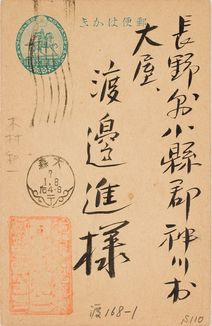 郵便はかき
長野縣小縣郡神川村
大屋、
渡邊進様
大森
7
1.8
后4-8
渡168-1
S110